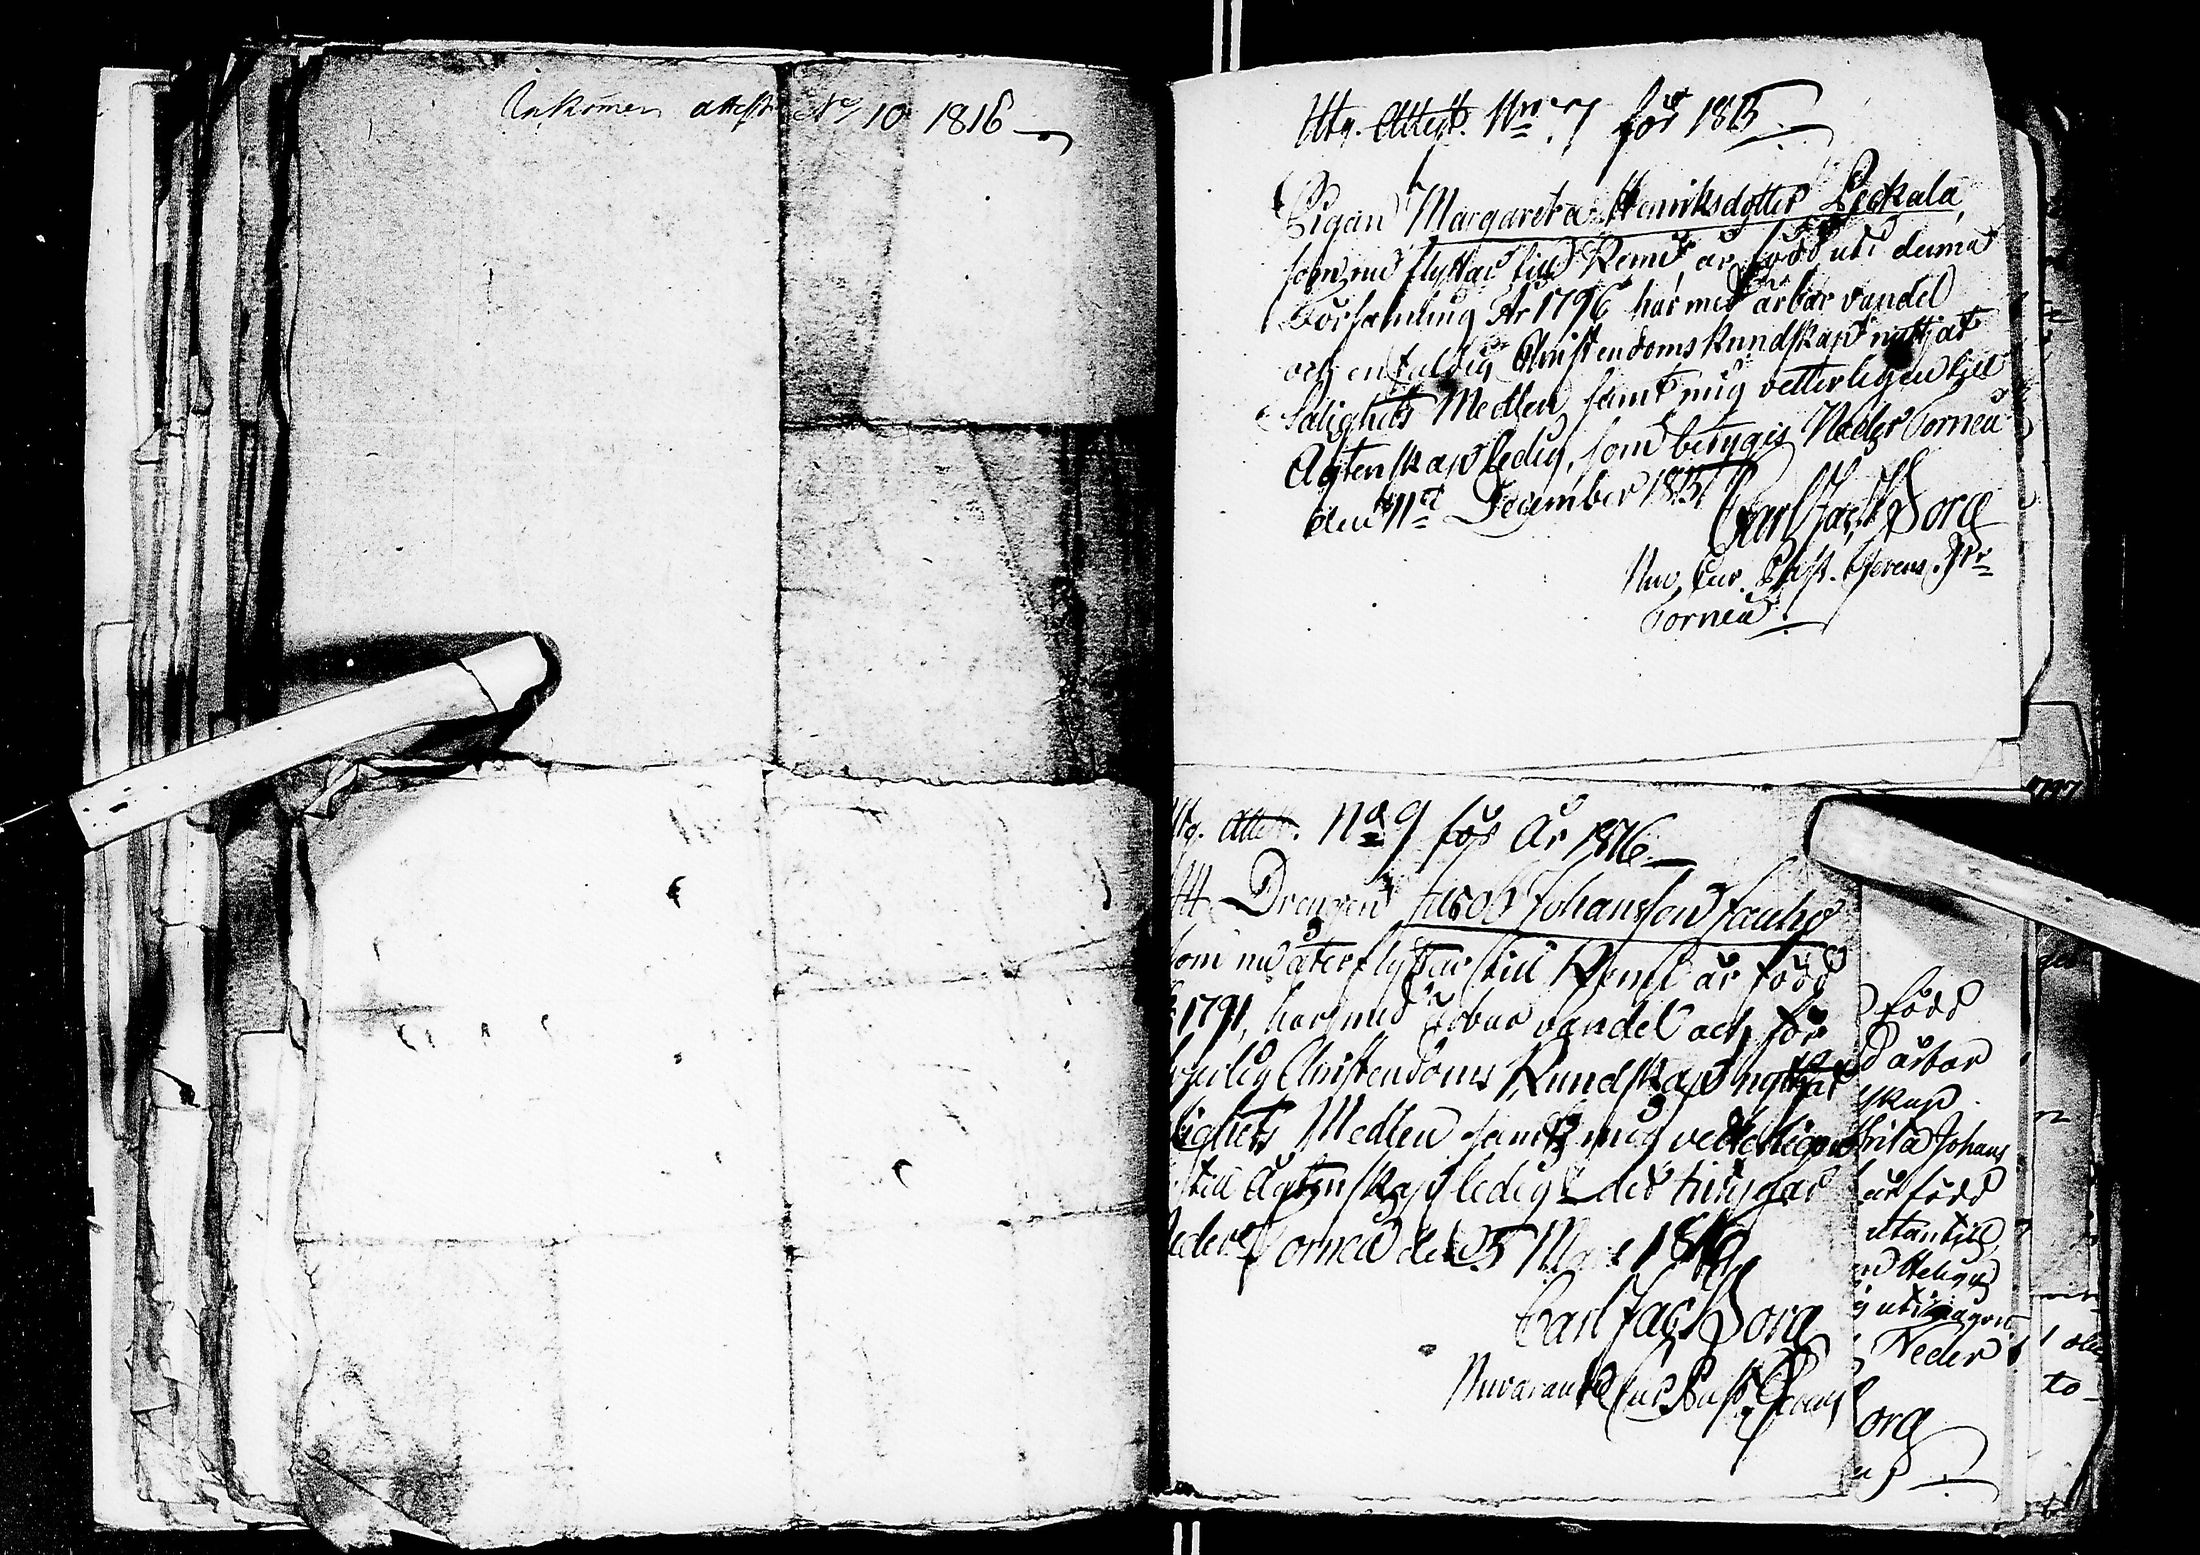 Inkomen attest No 10 1816
Utg. Attest. Nro 7 för 1815
Pigan Margareta Henriksdotter Leckala,
som nu flyttar till Kemi är född uti denna
Församling År 1796 har med ärbar vandel
och enfaldig Christendoms kundskap nyttjat
Salighets Medlen samt mig vetterligen till
Ägtenskap ledig, som betygas Neder Torneå
den 11te December 1815
Carl Jac. Borg
Nuv. Cur. Past. Gerens. Nr
Torneå.
Utg. Attest. No 9 för År 1816
Att Drengen Jacob Johansson Jauho
som nu återflyttar till Kemi är född
1791, har med ärbar vandel och för
Christendoms Kundskap nyttjat
lighets Medlen samt mig vetterligen
till Ägtenskap ledig det betygar
Neder Torneå den 5 1816
Carl Jac. Borg
Nuvarande Cur. Past. Gerens
född
d ärbar
skap
Brita Johans
är född
utantill,
Neder
org
1797
to-